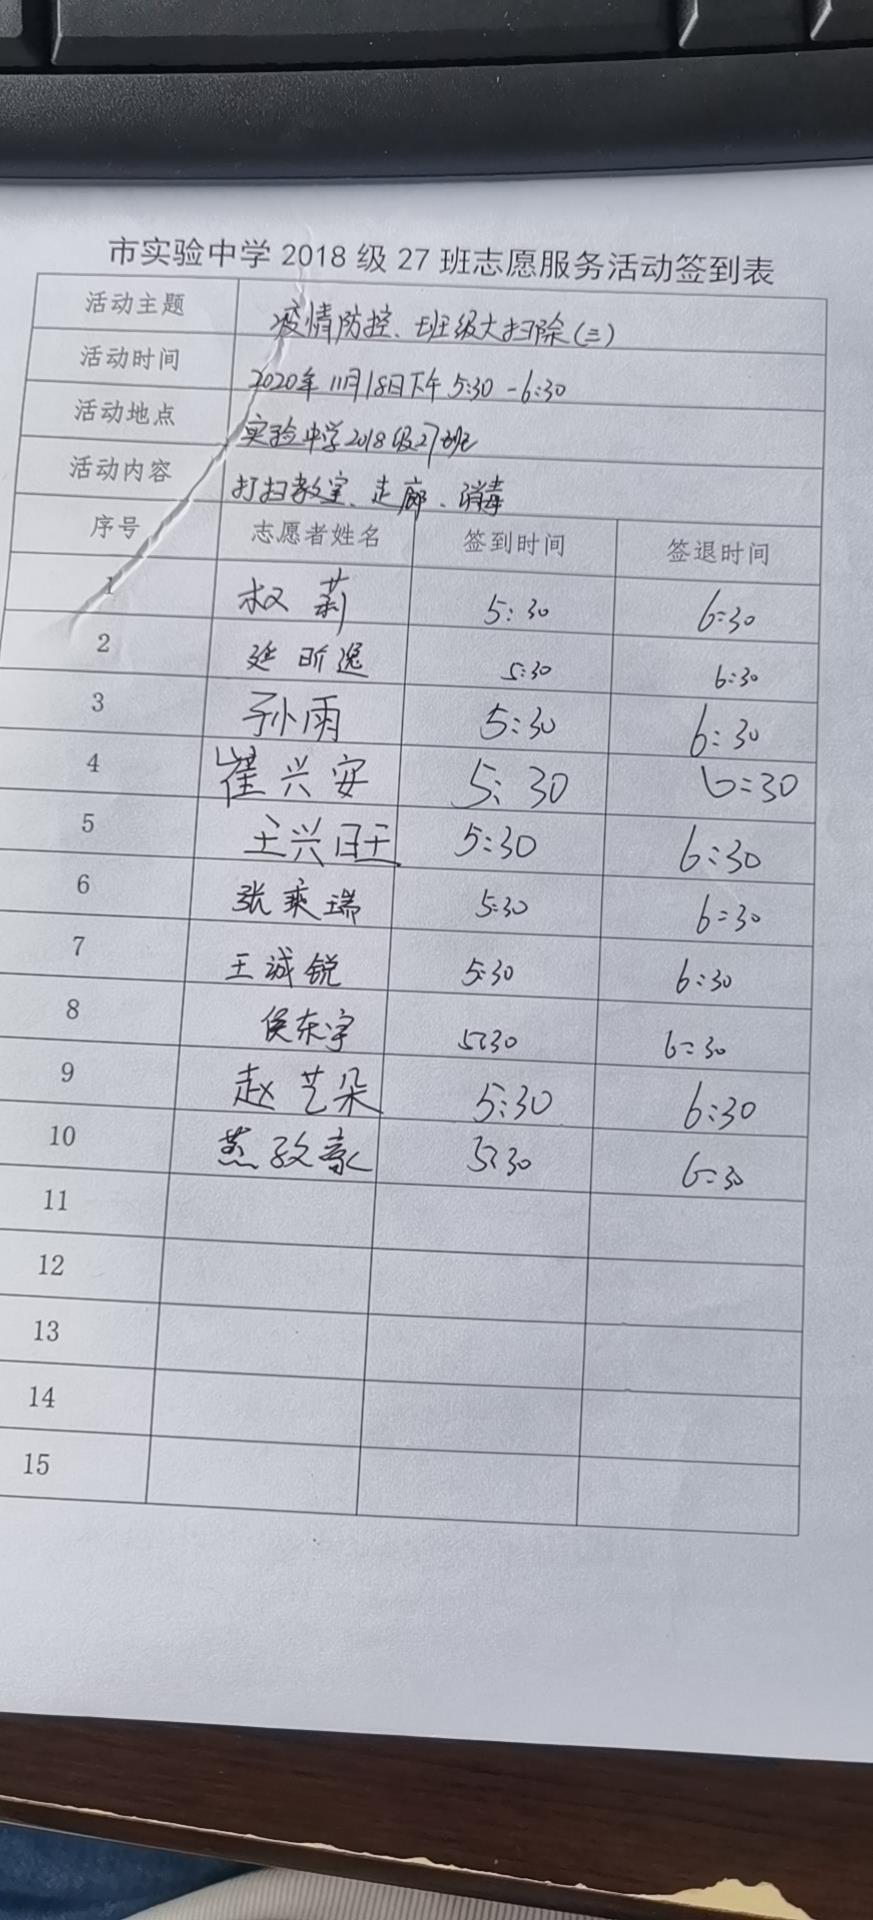 市实验中学2018级27班志愿服务活动签到表
活动主题 疫情防控、班级大扫除(三)
活动时间 2020年11月18日下午5:30-6:30
活动地点 实验中学2018级27班
活动内容 打扫教室、走廊、消毒
序号 志愿者姓名 签到时间 签退时间
1 权莉 5:30 6:30
2 延昕逸 5:30 6:30
3 孙雨 5:30 6:30
4 崔兴安 5:30 6:30
5 王兴旺 5:30 6:30
6 张乘瑞 5:30 6:30
7 王诚锐 5:30 6:30
8 侯东宇 5:30 6:30
9 赵艺朵 5:30 6:30
10 5:30 6:30
11
12
13
14
15